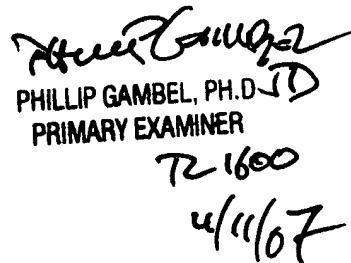 Phillip Gambel
PHILLIP GAMBEL, PH.D JD
PRIMARY EXAMINER
TC 1600
4/11/07